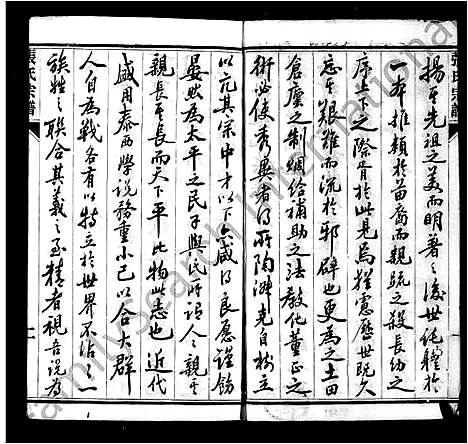 張氏宗譜
揚其先祖之美而明著之後世純軆於
一本推類於苗裔而親疏之殺長幼之
序上下之際胥於此見焉猶慮歷世既久
忘其艱難而流於邪辟也更為之土田
倉廩之制賙給補助之法教化董正之
術必使秀異者得所陶淑克自樹立
以亢其宗中才以下亦咸得良愿謹飭
晏然為太平之民子輿氏所謂人人親其
親長其長而天下平此物此志也近代
盛用泰西學說務重小己以合大群
人自為戰各有以特立於世界不沾沾一
族姓之聯合其義之至精者視吾説為
張氏宗譜
FamilySearch International